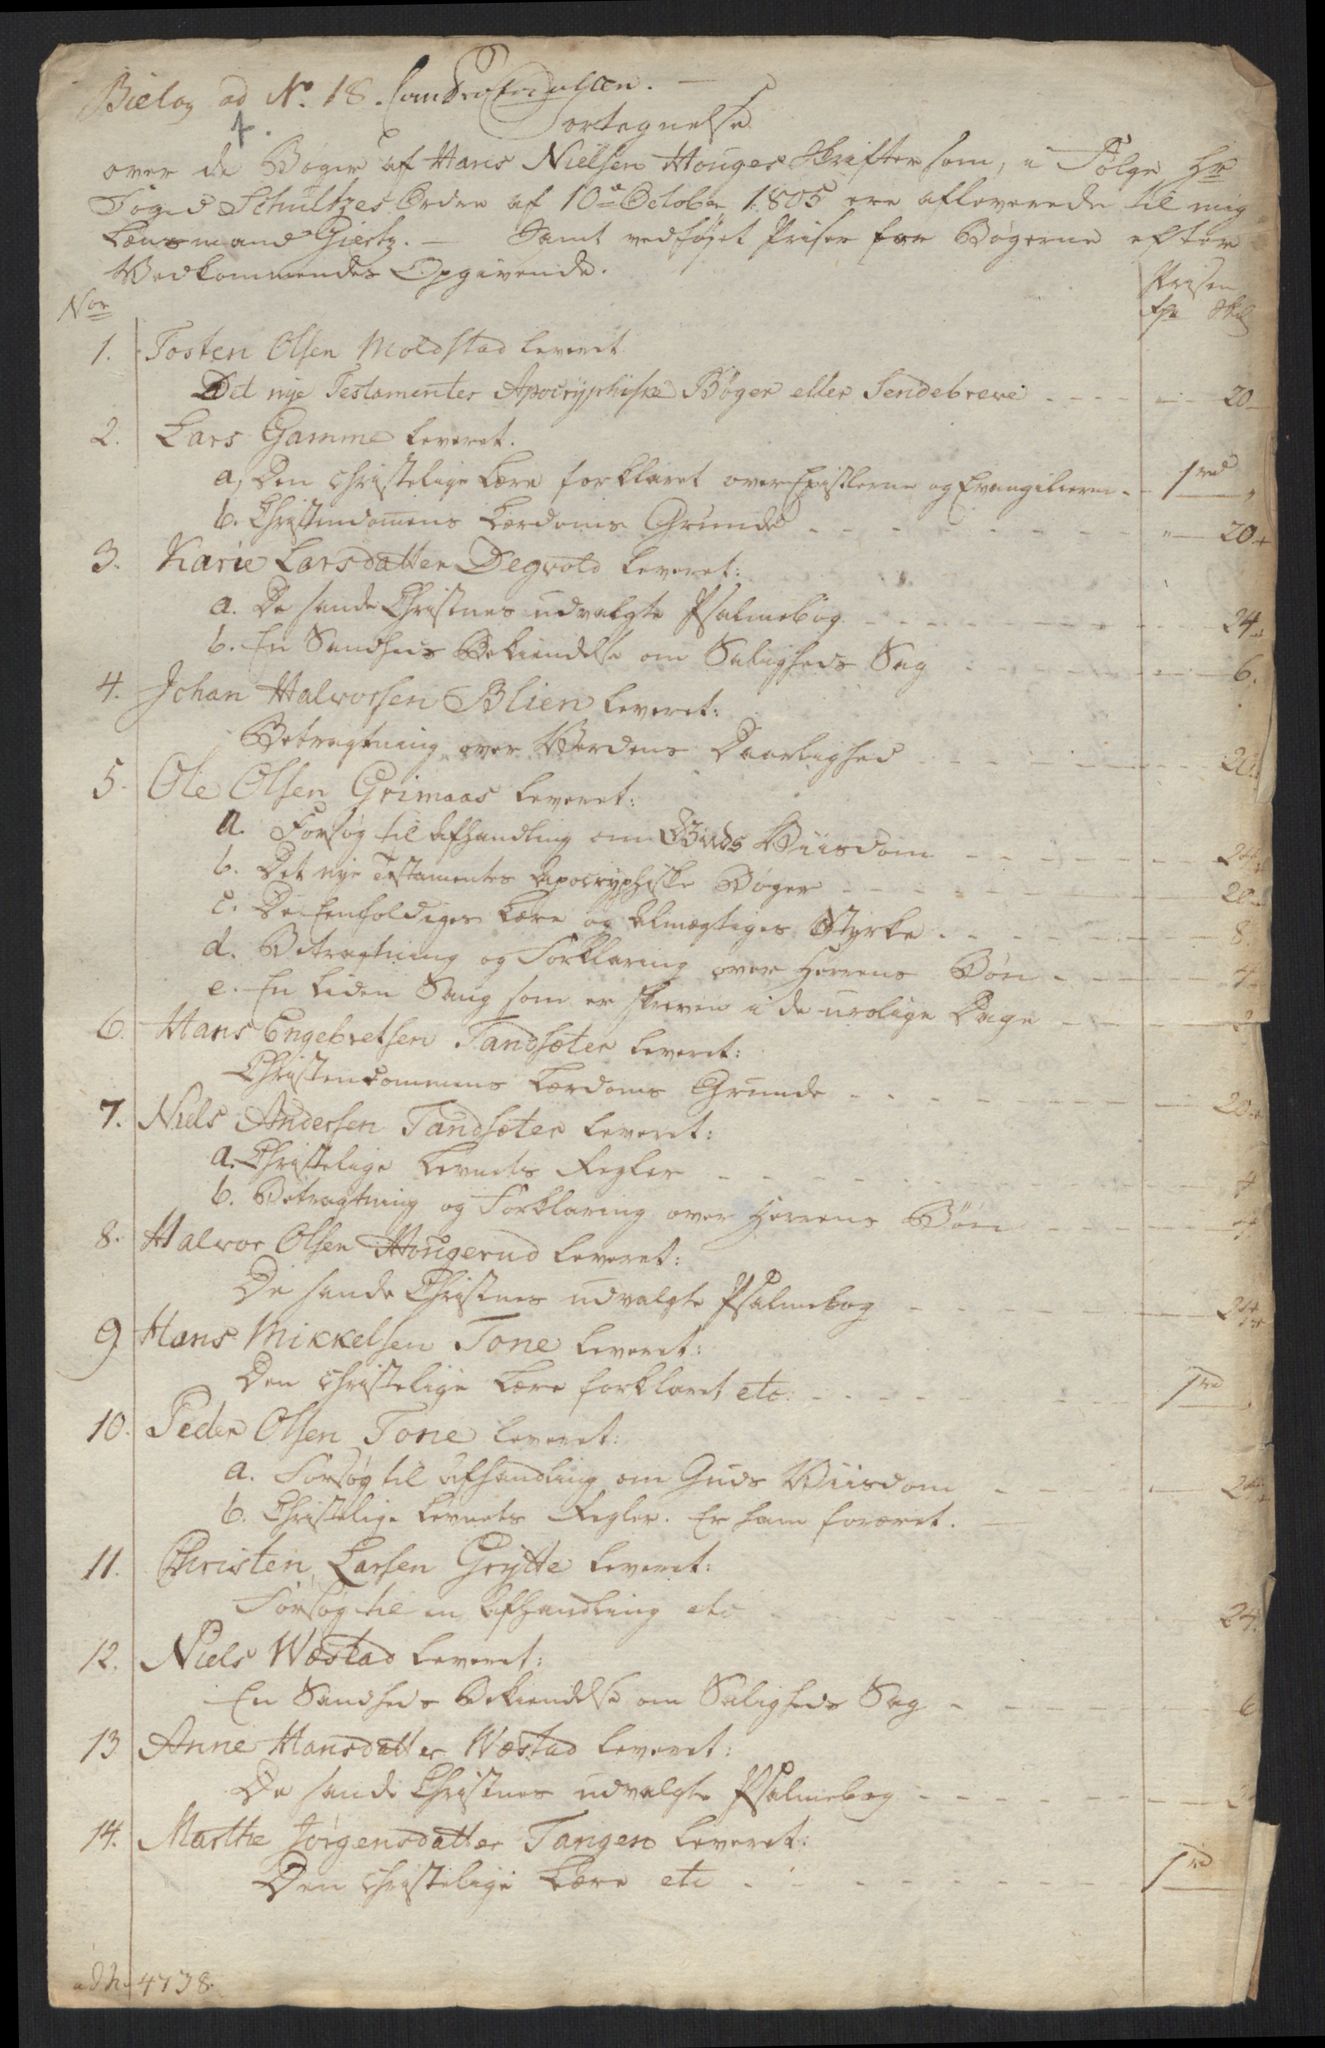 Bielag ad No. 18.
4.
Fortegnelse
over de Bøger af Hans Nielsen Houges Skrifter som, i Følge Hr
Foged Schultzes Ordre af 10de October 1805 ere afleverede til mig
Lensmand Giertz. — Samt vedføjet Priser for Bøgerne efter
Vedkommendes Opgivende.
Prisen
No Rdr Skl
1. Tosten Olsen Moldstad leveret
Det nye Testamentes Apocryphiske Bøger eller Sendebreve - - - - 20
2. Lars Gamme leveret.
a, Den christelige Lære forklaret over Epistlerne og Evangelierne - 1 rd „
b. Christendomens Lærdoms Grunde - - - - „ 20
3. Karie Larsdatter Degvold leveret:
a. De sande Christnes udvalgte Psalmebog - - - - 24
b. En Sandheds Bekiendelse om Saligheds Sag - - - - 6.
4. Johan Halvorsen Blien leveret:
Betragtning over Verdens Daarlighed - - - - 20
5. Ole Olsen Grimaas leveret:
a. Forsøg til Afhandling om Guds Viisdom - - - - 24
b. Det nye Testamentes Apocryphiske Bøger - - - - 20
c. De Eenfoldiges Lære og Almægtiges Styrke - - - - 8.
d. Betragtning og Forklaring over Herrens Bøn - - - - 4
e. En liden Sang som er skreven i de urolige Dage - - -
6. Hans Engebretsen Tandsæter leveret:
Christendommens Lærdoms Grunde - - - - 20
7. Niels Andersen Tandsæter leveret:
a. Christelige Levnets Regler - - - - 4
b. Betragtning og Forklaring over Herrens Bøn - - - - 4
8. Halvor Olsen Hougerud leveret:
De sande Christnes udvalgte Psalmebog - - - - 24
9 Hans Mikkelsen Tone leveret:
Den christelige Lære forklaret etc: - - - - 1 rd
10. Peder Olsen Tone leveret:
a. Forsøg til Afhandling om Guds Viisdom - - - - 24
b. Christelige Levnets Regler. Er ham foræret. —
11. Christen Larsen Grytte leveret:
Forsøg til en Afhandling etc - - - - 24.
12. Niels Wæstad leveret:
En Sandheds Bekiendelse om Saligheds Sag - - - - 6
13 Anne Hansdatter Wæstad leveret:
De sande Christnes udvalgte Psalmebog - - - -
14. Marthe Jørgensdatter Tangen leveret:
Den christelige Lære etc - - - - 1 rd
4738.